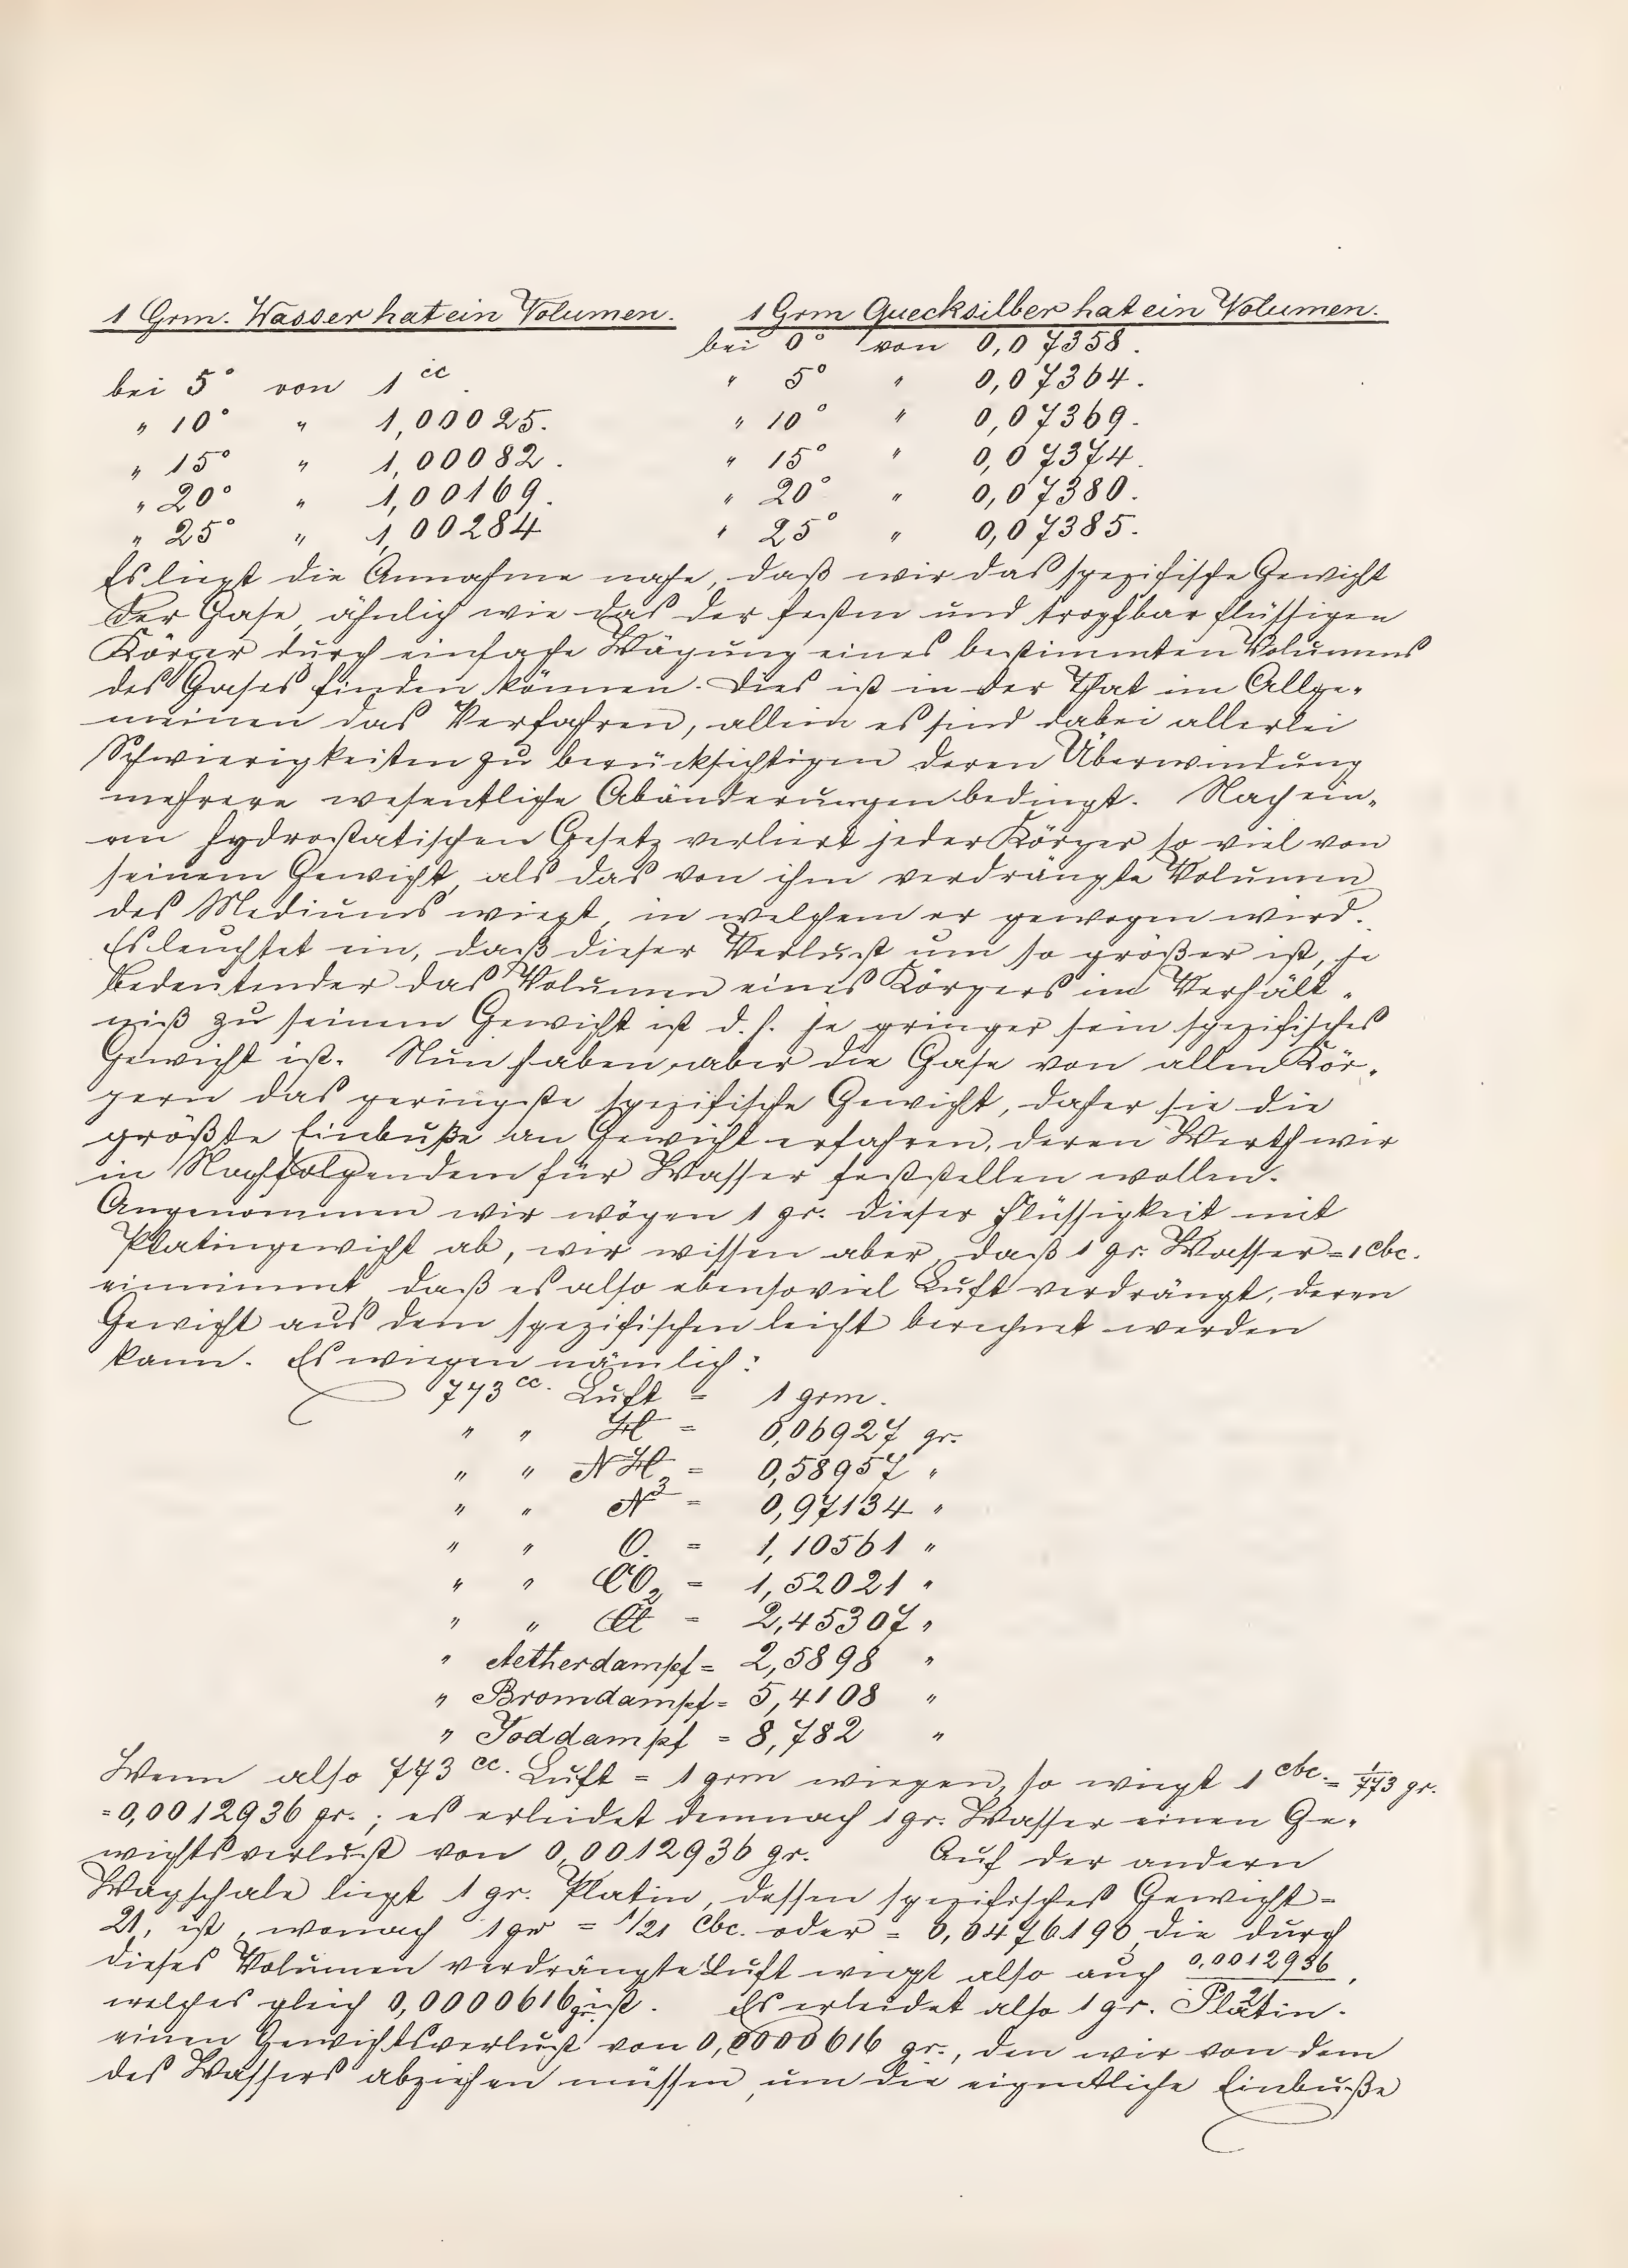 1 Grm. Wasser hat ein Volumen. 1 Grm Quecksilber hat ein Volumen.
bei 0° von 0,07358.
bei 5° von 1 cc. " 5° " 0,07364.
" 10° " 1,00025. " 10° " 0,07369.
" 15° " 1,00082. " 15° " 0,07374.
" 20° " 1,00169. " 20° " 0,07380.
" 25° " 1,00284 " 25° " 0,07385.
Es liegt die Annahme nahe, daß wir das spezifische Gewicht
der Gase, ähnlich wie das der festen und tropfbar flüssigen
Körper durch einfache Wägung eines bestimmten Volumens
des Gases finden können. Dies ist in der That im Allge-
meinen das Verfahren, allein es sind dabei allerlei
Schwierigkeiten zu berücksichtigen deren Überwindung
mehrere wesentliche Abänderungen bedingt. Nach ein-
em hydrostatischen Gesetz verliert jeder Körper so viel von
seinem Gewicht, als das von ihm verdrängte Volumen
des Mediums wiegt, in welchem er gewogen wird.
Es leuchtet ein, daß dieser Verlust um so größer ist, je
bedeutender das Volumen eines Körpers im Verhält-
niß zu seinem Gewicht ist d. h. je geringer sein spezifisches
Gewicht ist. Nun haben aber die Gase von allen Kör-
pern das geringste spezifische Gewicht, daher sie die
größte Einbuße an Gewicht erfahren, deren Werth wir
in Nachfolgendem für Wasser feststellen wollen.
Angenommen wir wögen 1 gr. dieser Flüssigkeit mit
Platingewicht ab, wir wissen aber, daß 1 gr. Wasser = 1 Cbc.
einnimmt, daß es also ebensoviel Luft verdrängt, deren
Gewicht aus dem spezifischen leicht berechnet werden
kann. Es wiegen nämlich:
773 cc. Luft = 1 grm.
" " H = 0,06927 gr.
" " NH3 = 0,58957 "
" " N = 0,97134 "
" " O. = 1,10561 "
" " CO2 = 1,52021 "
" " Cl = 2,45307 "
" Aetherdampf = 2,5898 "
" Bromdampf = 5,4108 "
" Joddampf = 8,782 "
Wenn also 773 cc. Luft = 1 grm wiegen, so wiegt 1 cbc. = 1/773 gr.
= 0,0012936 gr.; es erleidet demnach 1 gr. Wasser einen Ge-
wichtsverlust von 0,0012936 gr. Auf der andern
Wagschale liegt 1 gr. Platin, dessen spezifisches Gewicht =
21, ist, wonach 1 gr = 1/21 Cbc. oder = 0,0476190 die durch
dieses Volumen verdrängte Luft wiegt also auch 0,0012936/21,
welches gleich 0,0000616 gr. ist. Es erleidet also 1 gr. Platin.
einen Gewichtsverlust von 0,0000616 gr., den wir von dem
des Wassers abziehen müssen, um die eigentliche Einbuße